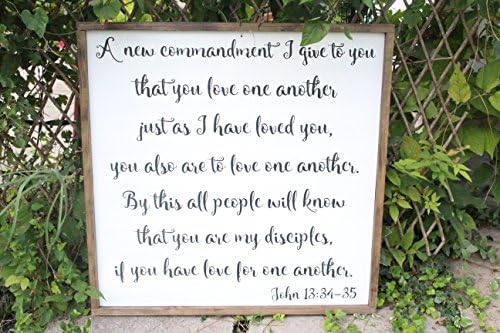 A new commandment I give to you
that you love one another
just as I have loved you,
you also are to love one another.
By this all people will know
that you are my disciples,
if you have love for one another.
John 13:34-35